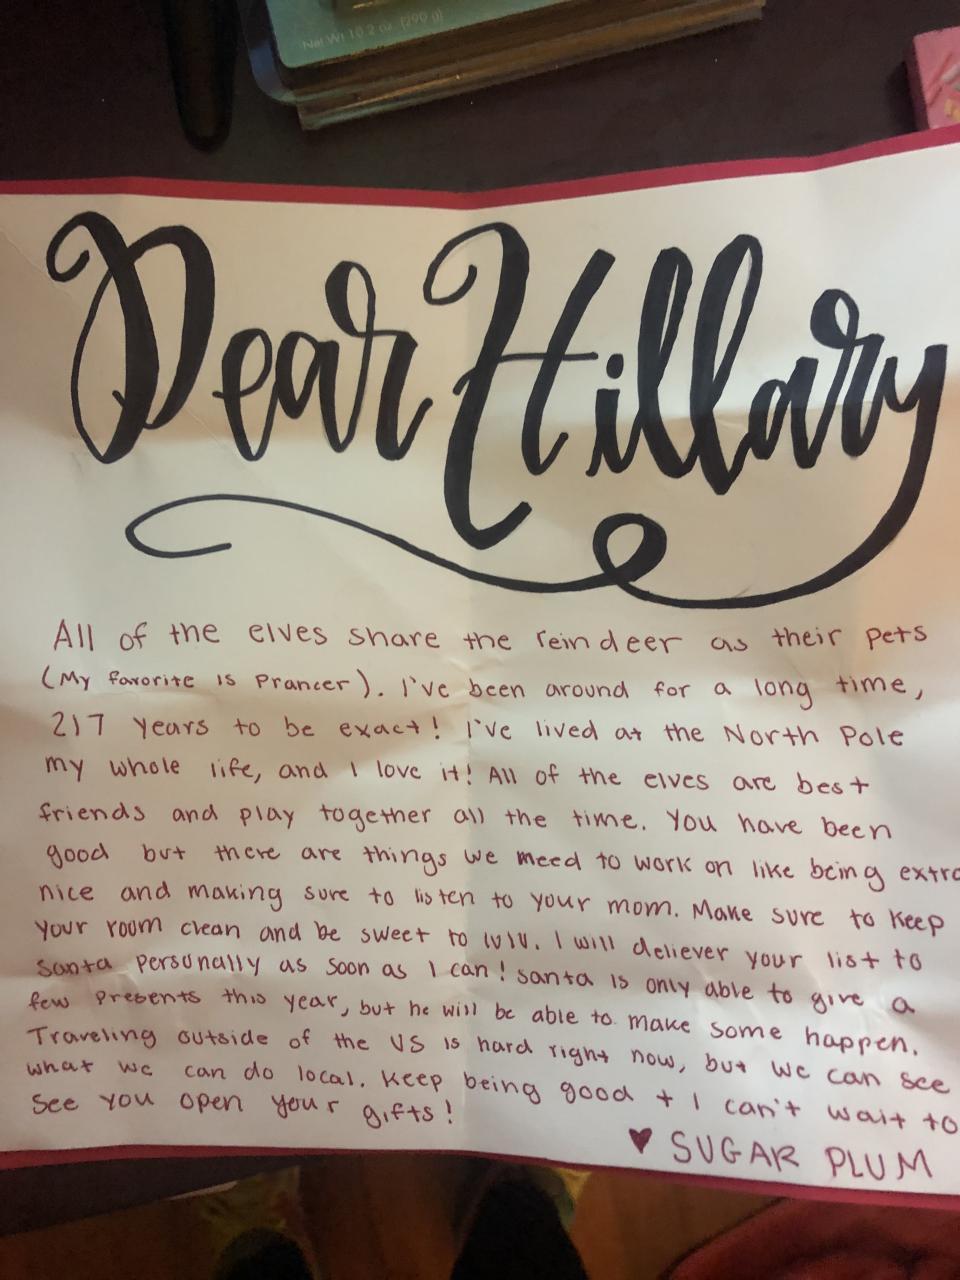 Net Wt 10.2 oz (290 g)
Dear Hillary
All of the elves share the reindeer as their pets
(My favorite is Prancer). I've been around for a long time,
217 years to be exact! I've lived at the North Pole
my whole life, and I love it! All of the elves are best
friends and play together all the time. You have been
good but there are things we need to work on like being extra
nice and making sure to listen to your mom. Make sure to keep
your room clean and be sweet to lulu. I will deliever your list to
Santa personally as soon as I can! Santa is only able to give a
few presents this year, but he will be able to make some happen.
Traveling outside of the US is hard right now, but we can see
what we can do local. Keep being good + I can't wait to
see you open your gifts!
♥ SUGAR PLUM